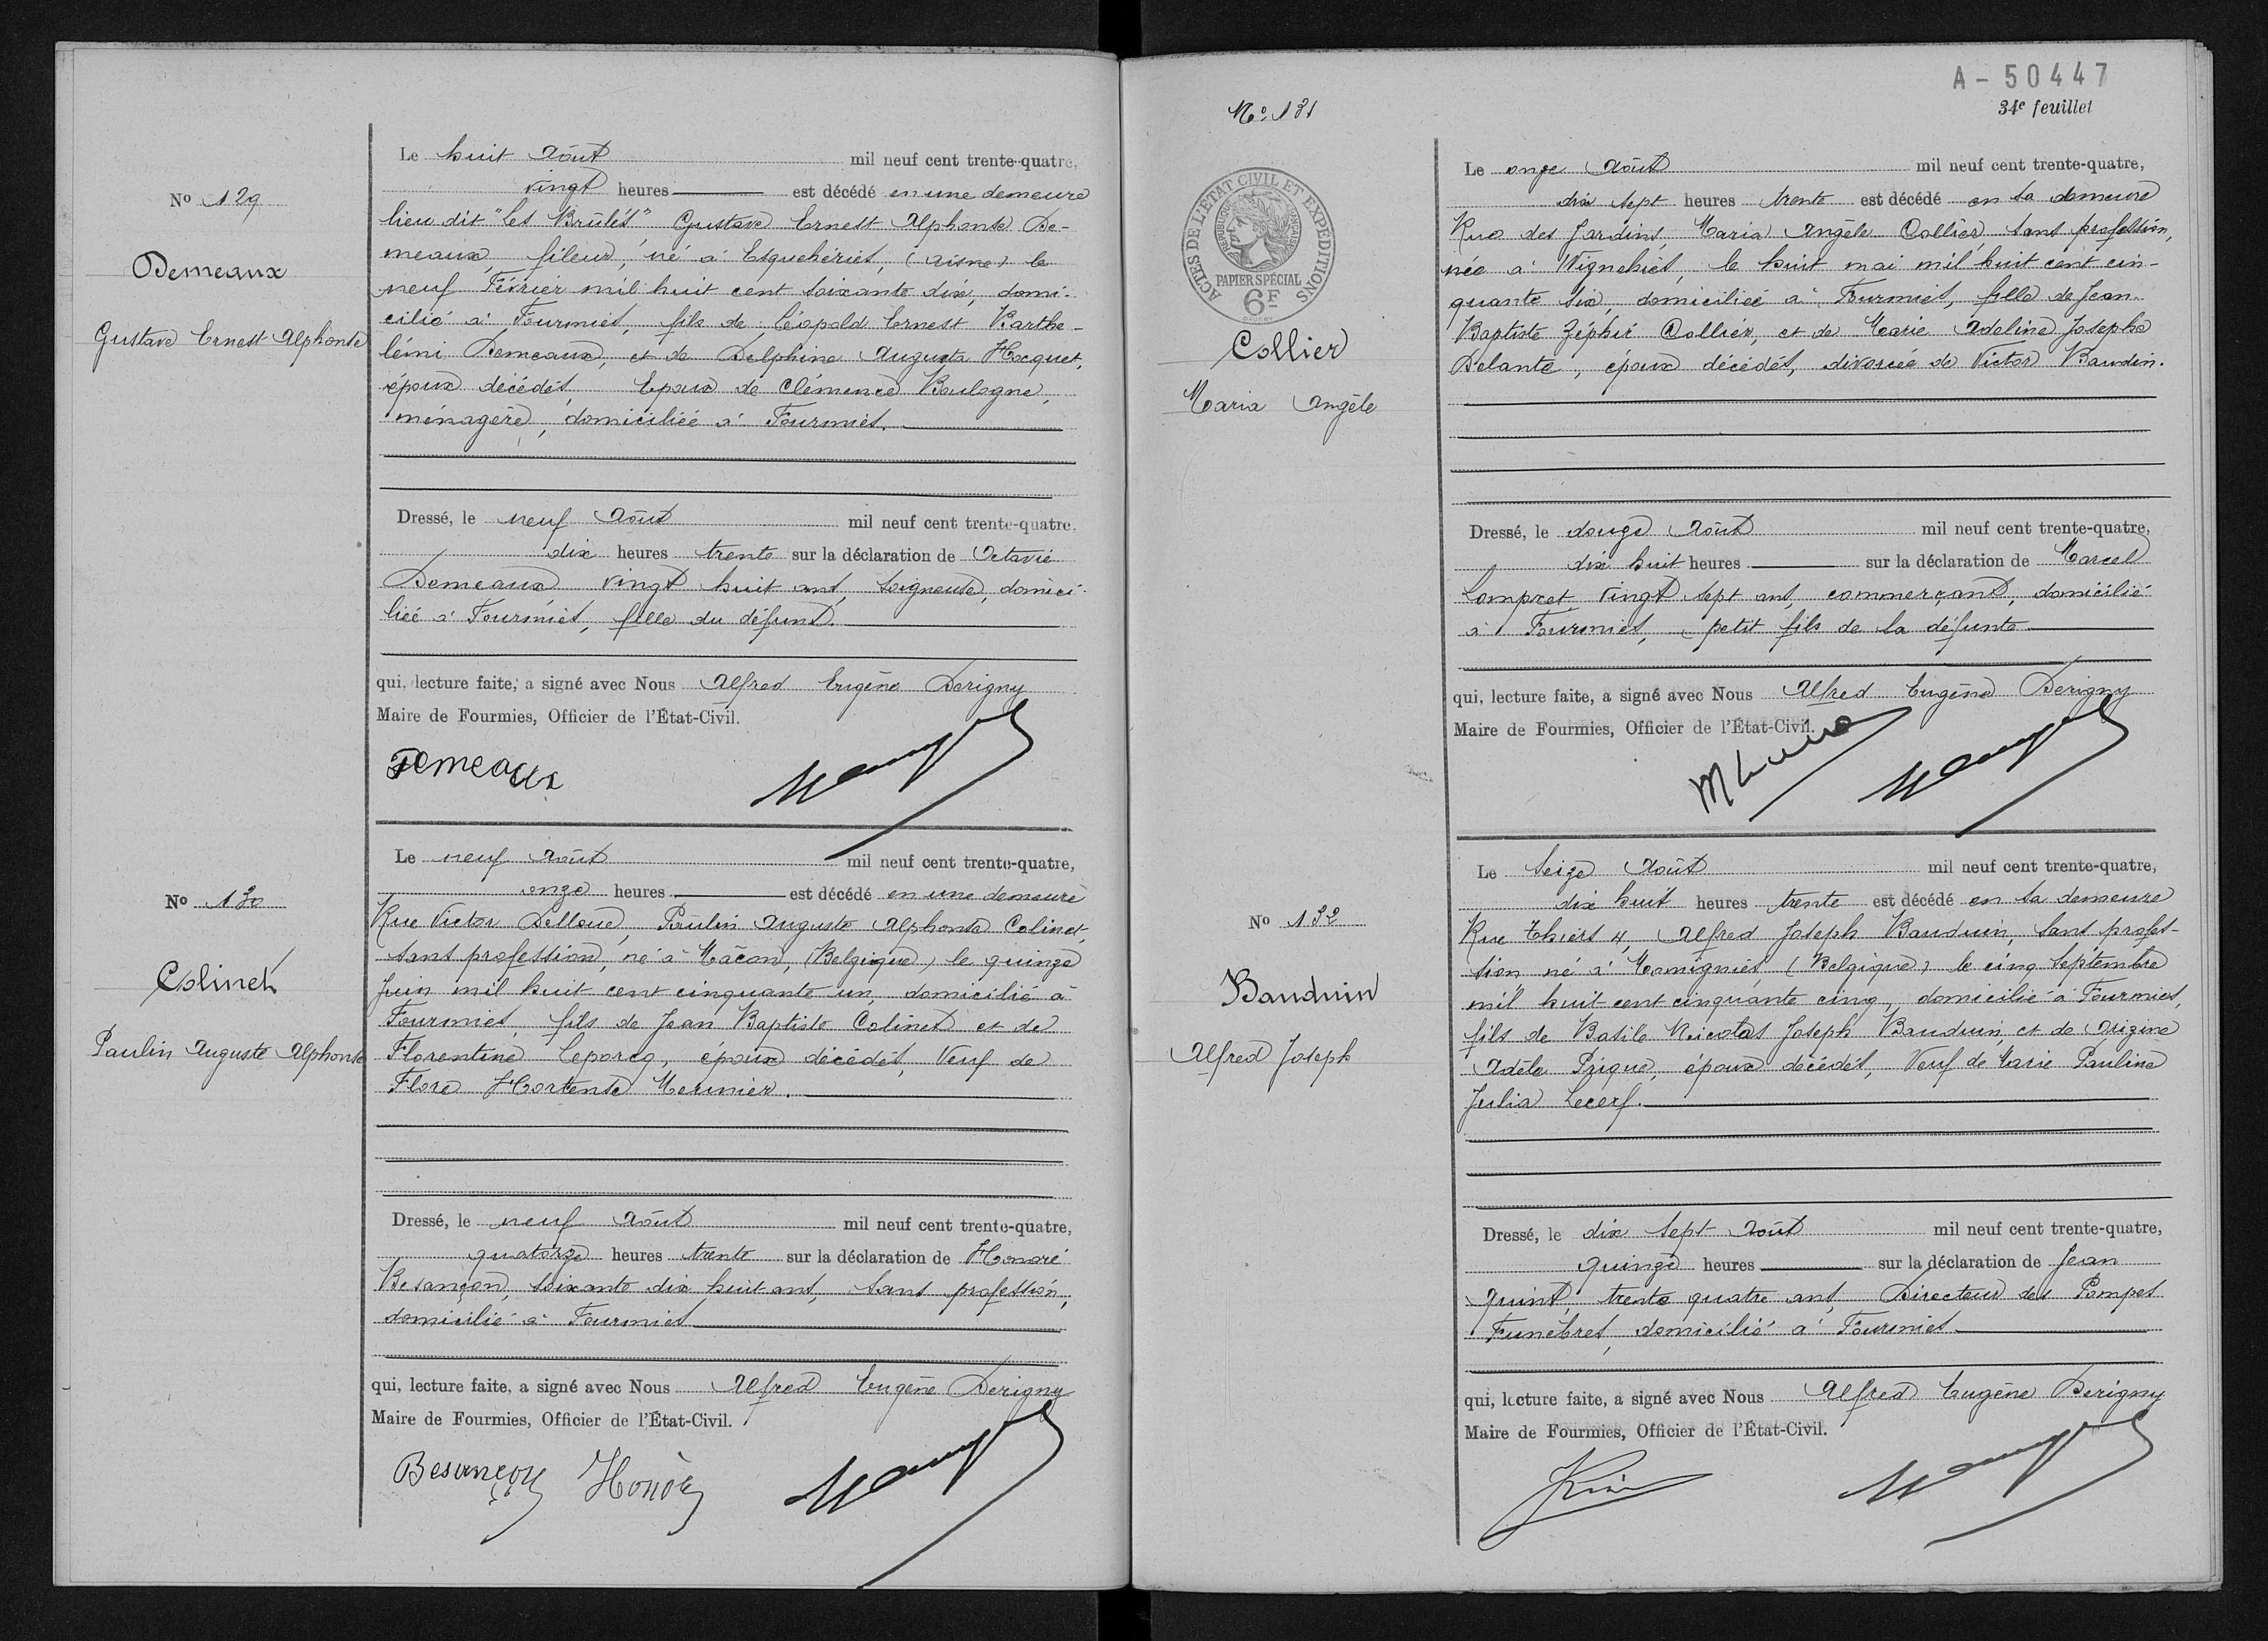 No 129
Demeaux
Gustave Ernest Alphonse
Le huit Août mil neuf cent trente-quatre,
vingt heures est décédé en une demeure
lieu dit "Les Brûlés" Gustave Ernest Alphonse De-
meaux, fileur, né à Esquehéries, (Aisne) le
neuf Février mil huit cent soixante dix, domi-
cilié à Fourmies, fils de Léopold Ernest Barthe-
lémi Demeaux, et de Delphine Augusta Hocquet,
époux décédés, Epoux de Clémence Boulogne,
ménagère, domiciliée à Fourmies.
Dressé, le neuf Août mil neuf cent trente-quatre,
dix heures trente sur la déclaration de Octavie
Demeaux vingt huit ans, soigneuse, domici-
liée à Fourmies, fille du défunt.
qui, lecture faite, a signé avec Nous Alfred Eugène Derigny
Maire de Fourmies, Officier de l'État-Civil.
Demeaux
No 130
Colinet
Paulin Auguste Alphonse
Le neuf Août mil neuf cent trente-quatre,
onze heures est décédé en une demeure
Rue Victor Delloue, Paulin Auguste Alphonse Colinet,
sans profession, né à Mâcon, (Belgique) le quinze
Juin mil huit cent cinquante un, domicilié à
Fourmies, fils de Jean Baptiste Colinet et de
Florentine Leporcq, époux décédés, Veuf de
Flore Hortense Meunier.
Dressé, le neuf Août mil neuf cent trente-quatre,
quatorze heures trente sur la déclaration de Honoré
Besançon, soixante dix huit ans, sans profession,
domicilié à Fourmies
qui, lecture faite, a signé avec Nous Alfred Eugène Derigny
Maire de Fourmies, Officier de l'État-Civil.
Besançon Honoré
A-50447
34e feuillet
No 131
ACTES DE L'ÉTAT CIVIL ET EXPÉDITIONS
RÉPUBLIQUE FRANÇAISE
PAPIER SPÉCIAL
6F
Collier
Maria Angèle
Le onze Août mil neuf cent trente-quatre,
dix sept heures trente est décédé en sa demeure
Rue des Jardins, Maria Angèle Collier, sans profession,
née à Wignehies, le huit mai mil huit cent cin-
quante six, domiciliée à Fourmies, fille de Jean-
Baptiste Zéphir Collier, et de Marie Adeline Josephe
Delante, époux décédés, divorcée de Victor Baudin.
Dressé, le douze Août mil neuf cent trente-quatre,
dix huit heures sur la déclaration de Marcel
Lompret, vingt sept ans, commerçant, domicilié
à Fourmies, petit fils de la défunte
qui, lecture faite, a signé avec Nous Alfred Eugène Derigny
Maire de Fourmies, Officier de l'État-Civil.
No 132
Bauduin
Alfred Joseph
Le Seize Août mil neuf cent trente-quatre,
dix huit heures trente est décédé en sa demeure
Rue Thiers 4, Alfred Joseph Bauduin, sans profes-
sion né à Momignies, (Belgique) le cinq Septembre
mil huit cent cinquante cinq, domicilié à Fourmies,
fils de Basile Nicolas Joseph Bauduin, et de
Adèle époux décédés, Veuf de Marie Pauline
Julia Lecerf.
Dressé, le dix sept Août mil neuf cent trente-quatre,
quinze heures sur la déclaration de Jean
Quint, trente quatre ans, Directeur des Pompes
Funèbres, domicilié à Fourmies
qui, lecture faite, a signé avec Nous Alfred Eugène Derigny
Maire de Fourmies, Officier de l'État-Civil.